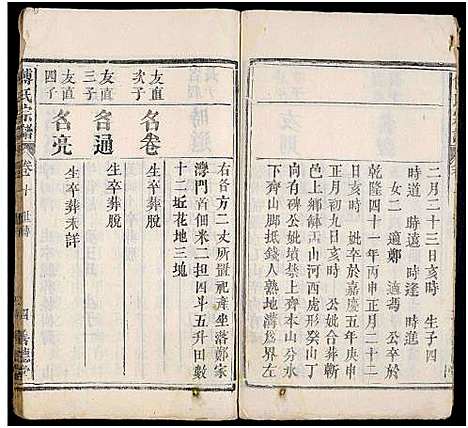 二月二十三日亥時　生子四
時道　時遠　時逢　時
女二　適鄭　適馮　公卒於
乾隆四十一年丙申正月二十二
日亥時　妣卒於嘉慶五年庚申
正月初九日亥時　公妣合葬蘄
邑上鄉
山河西虎形癸山丁
向有碑公妣墳禁上齊本山分水
下齊山脚抵錢人熟地溝為界左
右各方二丈所置祀產坐落鄭家
灣門首佃米二担四斗五升田數
十二坵花地三塊
友直次子
名卷
生卒葬脫
友直三子
名通
生卒葬脫
友直四子
名亮
生卒葬未詳
傅氏宗譜
卷十